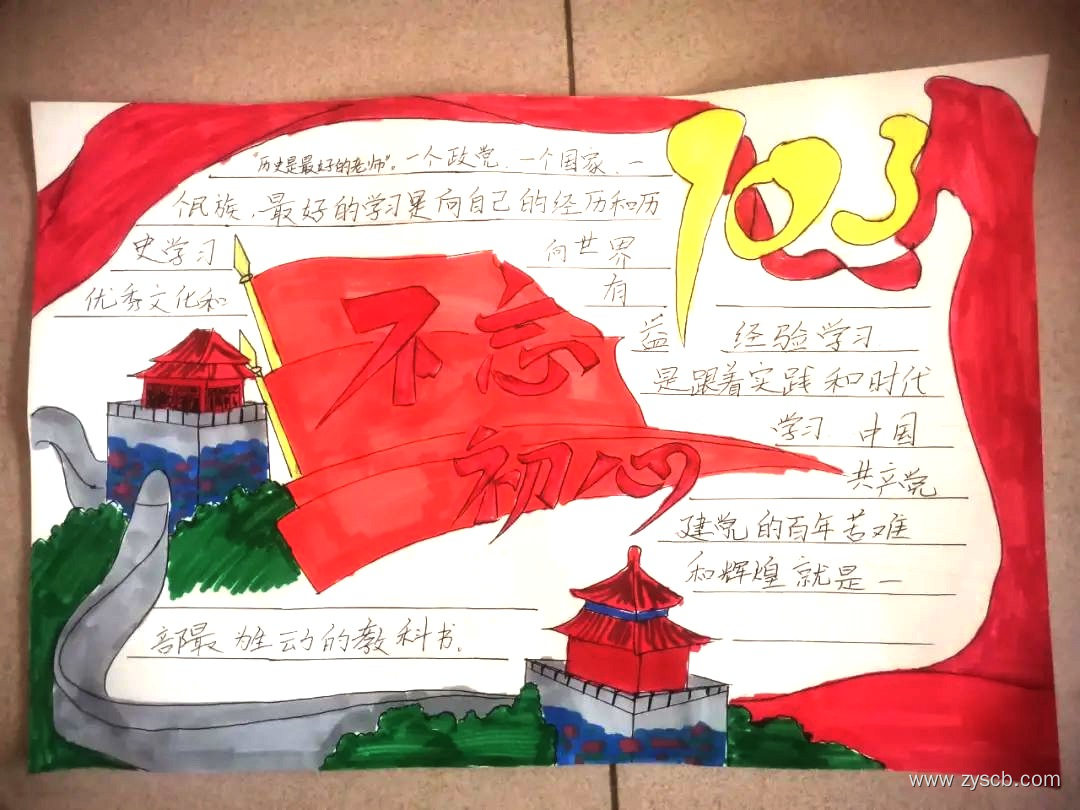 103
"历史是最好的老师"。一个政党、一个国家、一
个民族,最好的学习是向自己的经历和历
史学习 向世界
优秀文化和 有
益 经验学习
是跟着实践和时代
学习. 中国
共产党
建党的百年苦难
和辉煌就是一
部最为生动的教科书。
不忘
初心
www.zyscb.com